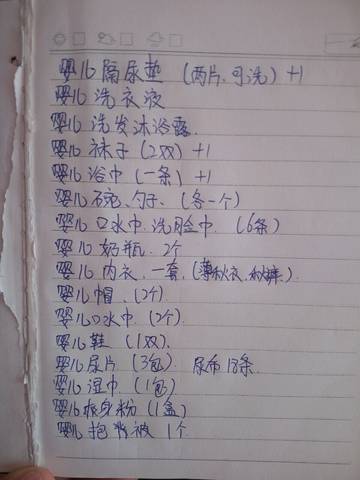 婴儿隔尿垫 (两片、可洗) +1
婴儿洗衣液
婴儿洗发沐浴露.
婴儿袜子 (2双) +1
婴儿浴巾 (一条) +1
婴儿碗、勺子、(各一个)
婴儿口水巾 洗脸巾. (6条)
婴儿奶瓶. 2个
婴儿内衣. 一套. (薄秋衣、秋裤)
婴儿帽. (2个)
婴儿口水巾. (2个)
婴儿鞋 (1双).
婴儿尿片. (3包) 尿布18条
婴儿湿巾 (1包)
婴儿爽身粉 (1盒)
婴儿抱被 1个